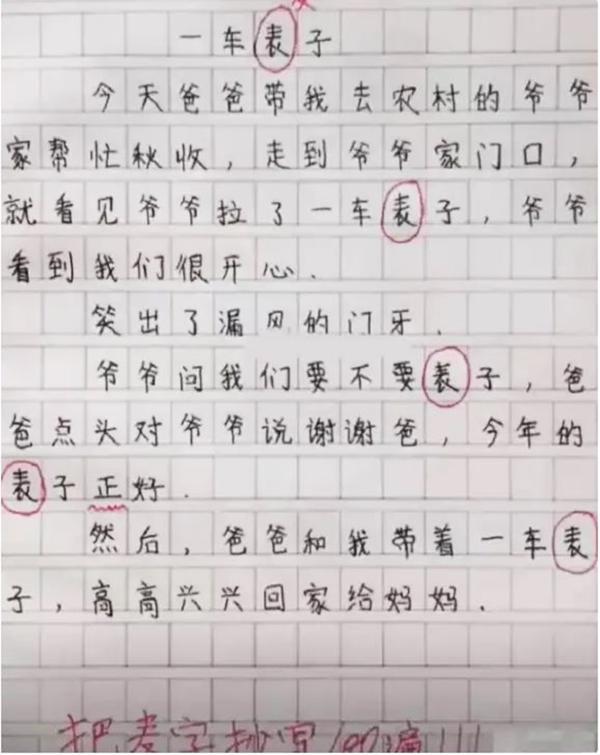 一车表子
今天爸爸带我去农村的爷爷
家帮忙秋收，走到爷爷家门口，
就看见爷爷拉了一车表子，爷爷
看到我们很开心.
笑出了漏风的门牙.
爷爷问我们要不要表子，爸
爸点头对爷爷说谢谢爸，今年的
表子正好.
然后，爸爸和我带着一车表
子，高高兴兴回家给妈妈.
把麦字抄写100遍!!!